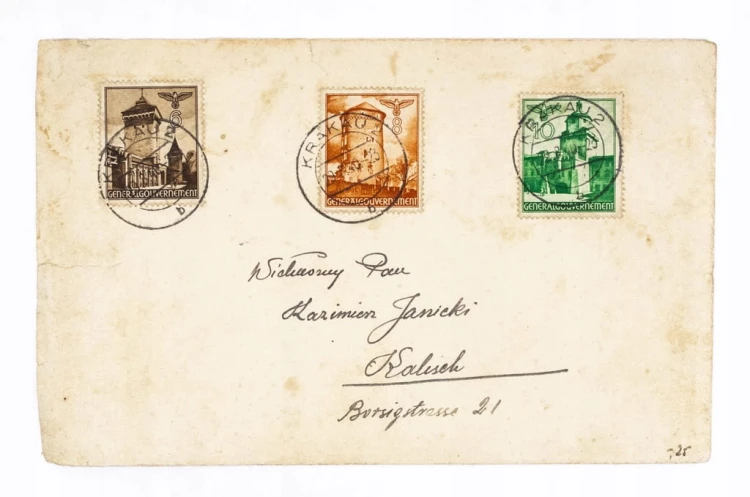 6
GENERALGOUVERNEMENT
KRAKAU 2
b
8
GENERALGOUVERNEMENT
KRAKAU 2
b
10
GENERALGOUVERNEMENT
KRAKAU 2
b
Pan
Kazimierz Janicki
Kalisch
Borsigstrasse 21